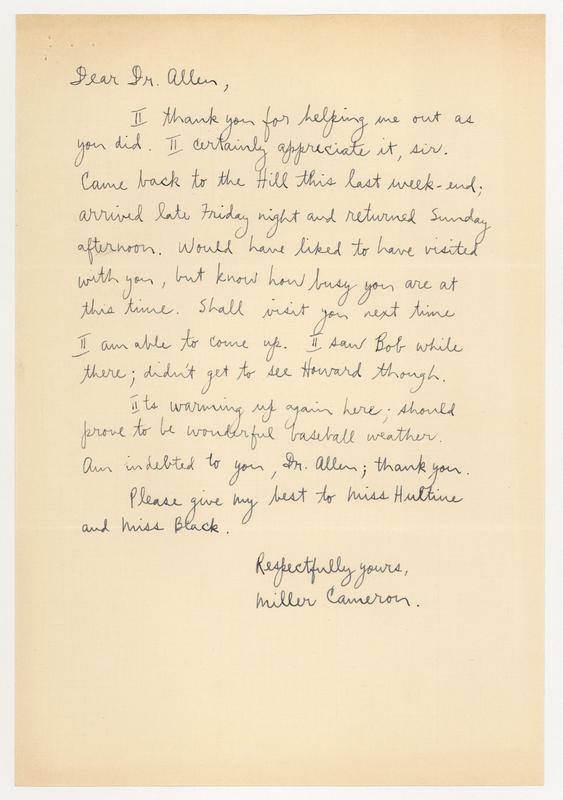 Dear Dr. Allen,
I thank you for helping me out as
you did. I certainly appreciate it, sir.
Came back to the Hill this last week-end;
arrived late Friday night and returned Sunday
afternoon. Would have liked to have visited
with you, but know how busy you are at
this time. Shall visit you next time
I am able to come up. I saw Bob while
there; didn't get to see Howard though.
Its warming up again here; should
prove to be wonderful baseball weather.
Am indebted to you, Dr. Allen; thank you.
Please give my best to Miss Hultine
and Miss Black.
Respectfully yours,
Miller Cameron.